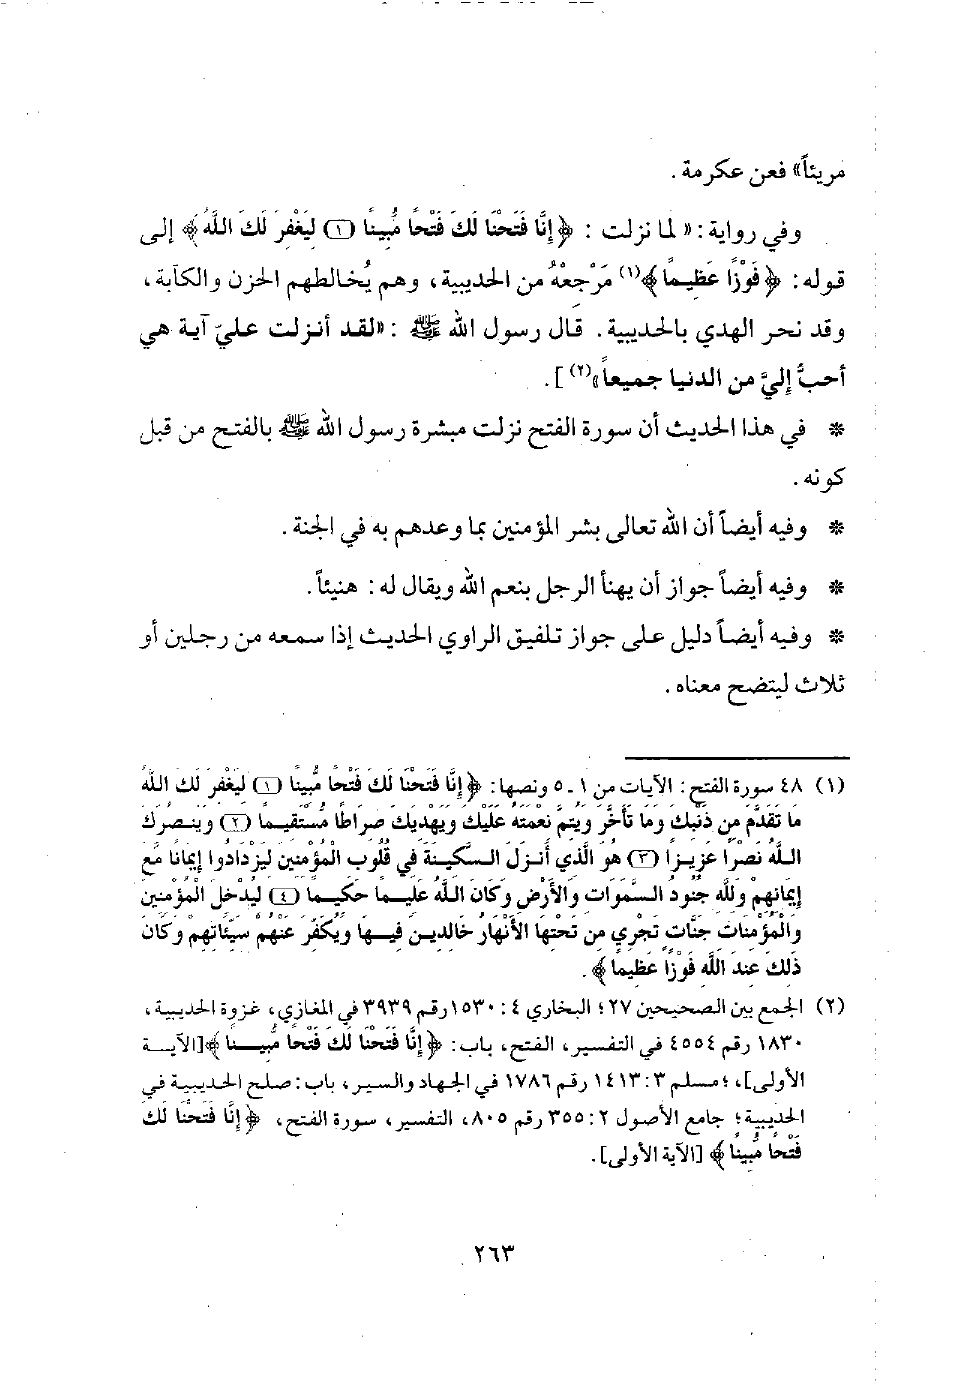 مريئاً» فعن عكرمة .
وفي رواية : « لما نزلت : ﴿ إِنَّا فَتَحْنَا لَكَ فَتْحًا مُّبِينًا (١) لِيَغْفِرَ لَكَ اللَّهُ ﴾ إلى
قوله : ﴿ فَوْزًا عَظِيمًا ﴾(١) مَرْجعْهُ من الحديبية ، وهم يُخالطهم الحزن والكآبة ،
وقد نحر الهدي بالحديبية . قال رسول الله ﷺ : «لقد أنزلت عليّ آية هي
أحبُّ إليَّ من الدنيا جميعاً»(٢) ] .
* في هذا الحديث أن سورة الفتح نزلت مبشرة رسول الله ﷺ بالفتح من قبل
كونه .
* وفيه أيضاً أن الله تعالى بشر المؤمنين بما وعدهم به في الجنة .
* وفيه أيضاً جواز أن يهنأ الرجل بنعم الله ويقال له : هنيئاً .
* وفيه أيضاً دليل على جواز تلفيق الراوي الحديث إذا سمعه من رجلين أو
ثلاث ليتضح معناه .
(١) ٤٨ سورة الفتح : الآيات من ١ - ٥ ونصها : ﴿ إِنَّا فَتَحْنَا لَكَ فَتْحًا مُّبِينًا (١) لِيَغْفِرَ لَكَ اللَّهُ
مَا تَقَدَّمَ مِن ذَنْبِكَ وَمَا تَأَخَّرَ وَيُتِمَّ نِعْمَتَهُ عَلَيْكَ وَيَهْدِيَكَ صِرَاطًا مُّسْتَقِيمًا (٢) وَيَنصُرَكَ
اللَّهُ نَصْرًا عَزِيزًا (٣) هُوَ الَّذِي أَنزَلَ السَّكِينَةَ فِي قُلُوبِ الْمُؤْمِنِينَ لِيَزْدَادُوا إِيمَانًا مَّعَ
إِيمَانِهِمْ وَلِلَّهِ جُنُودُ السَّمَوَاتِ وَالأَرْضِ وَكَانَ اللَّهُ عَلِيمًا حَكِيمًا (٤) لِيُدْخِلَ الْمُؤْمِنِينَ
وَالْمُؤْمِنَاتِ جَنَّاتٍ تَجْرِي مِن تَحْتِهَا الأَنْهَارُ خَالِدِينَ فِيهَا وَيُكَفِّرَ عَنْهُمْ سَيِّئَاتِهِمْ وَكَانَ
ذَلِكَ عِندَ اللَّهِ فَوْزًا عَظِيمًا ﴾ .
(٢) الجمع بين الصحيحين ٢٧ ؛ البخاري ٤ : ١٥٣٠ رقم ٣٩٣٩ في المغازي ، غزوة الحديبية ،
١٨٣٠ رقم ٤٥٥٤ في التفسير ، الفتح ، باب : ﴿ إِنَّا فَتَحْنَا لَكَ فَتْحًا مُّبِينًا ﴾ [الآية
الأولى] ، ؛ مسلم ٣ : ١٤١٣ رقم ١٧٨٦ في الجهاد والسير ، باب : صلح الحديبية في
الحديبية ؛ جامع الأصول ٢ : ٣٥٥ رقم ٨٠٥ ، التفسير ، سورة الفتح ، ﴿ إِنَّا فَتَحْنَا لَكَ
فَتْحًا مُّبِينًا ﴾ [الآية الأولى] .
٢٦٣